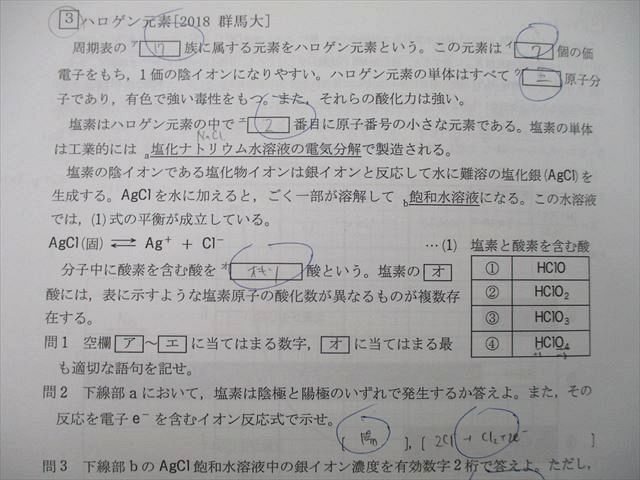 3 ハロゲン元素[2018 群馬大]
周期表の ア 17 族に属する元素をハロゲン元素という。この元素は イ 7 個の価
電子をもち，1価の陰イオンになりやすい。ハロゲン元素の単体はすべて ウ 二 原子分
子であり，有色で強い毒性をもつ。また，それらの酸化力は強い。
塩素はハロゲン元素の中で エ 2 番目に原子番号の小さな元素である。塩素の単体
NaCl
は工業的には a塩化ナトリウム水溶液の電気分解で製造される。
塩素の陰イオンである塩化物イオンは銀イオンと反応して水に難溶の塩化銀(AgCl)を
生成する。AgClを水に加えると，ごく一部が溶解して b飽和水溶液になる。この水溶液
では，(1)式の平衡が成立している。
AgCl(固) ⇄ Ag⁺ + Cl⁻ …(1)
分子中に酸素を含む酸を オ オキソ 酸という。塩素の オ
酸には，表に示すような塩素原子の酸化数が異なるものが複数存
在する。
塩素と酸素を含む酸
① HClO
② HClO₂
③ HClO₃
④ HClO₄
問1 空欄 ア ～ エ に当てはまる数字， オ に当てはまる最
も適切な語句を記せ。
問2 下線部aにおいて，塩素は陰極と陽極のいずれで発生するか答えよ。また，その
反応を電子e⁻を含むイオン反応式で示せ。
[ ], [ 2Cl⁻ → Cl₂+2e⁻ ]
問3 下線部bのAgCl飽和水溶液中の銀イオン濃度を有効数字2桁で答えよ。ただし，